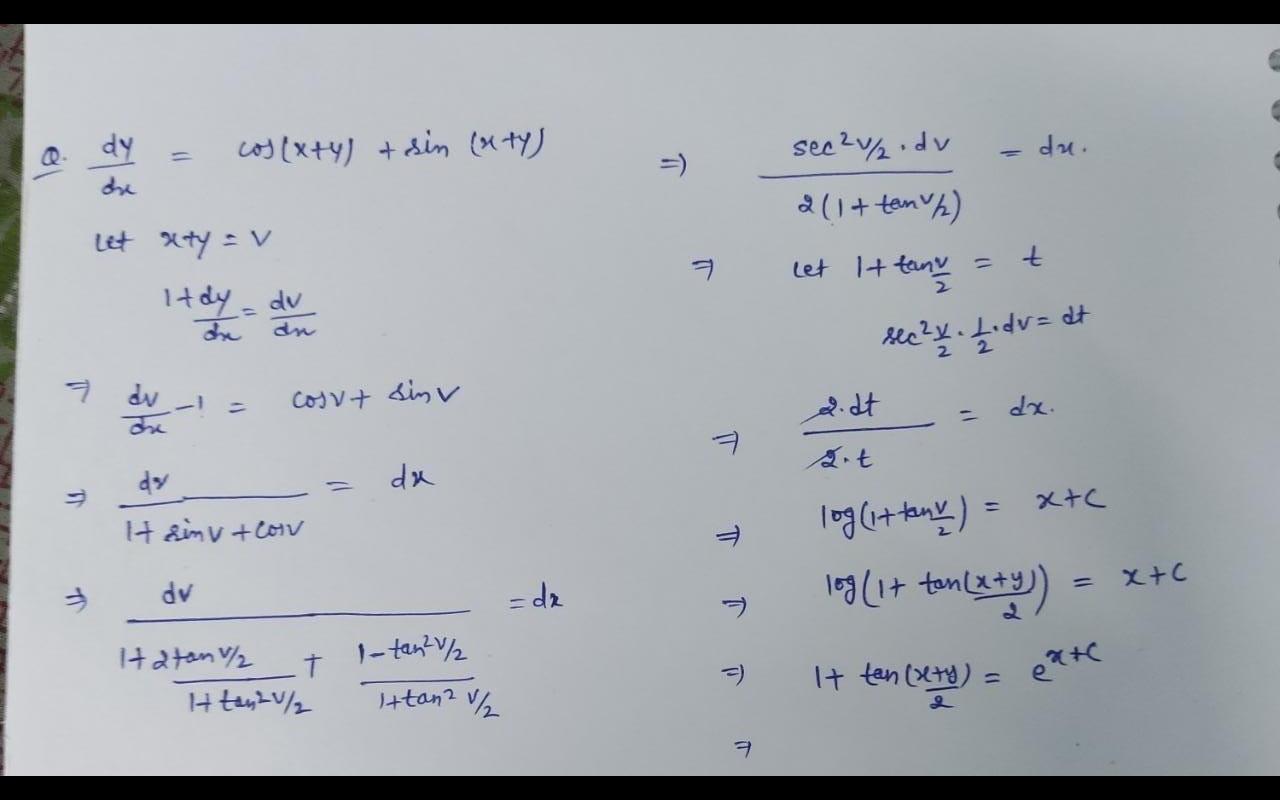 Q. dy/dx = cos(x+y) + sin (x+y)
Let x+y = v
1+dy/dx = dv/dx
⇒ dv/dx -1 = cosv + sinv
⇒ dv/(1+ sinv + cosv) = dx
⇒ dv/(1+ 2tan v/2/(1+tan²v/2) + (1-tan²v/2)/(1+tan² v/2)) = dx
⇒ sec²v/2 . dv/(2(1+tan v/2)) = dx.
⇒ Let 1+ tan v/2 = t
sec² v/2 . 1/2 . dv = dt
⇒ 2.dt/2.t = dx.
⇒ log(1+tan v/2) = x+c
⇒ log(1+ tan(x+y)/2) = x+c
⇒ 1+ tan(x+y)/2 = e^x+c
⇒